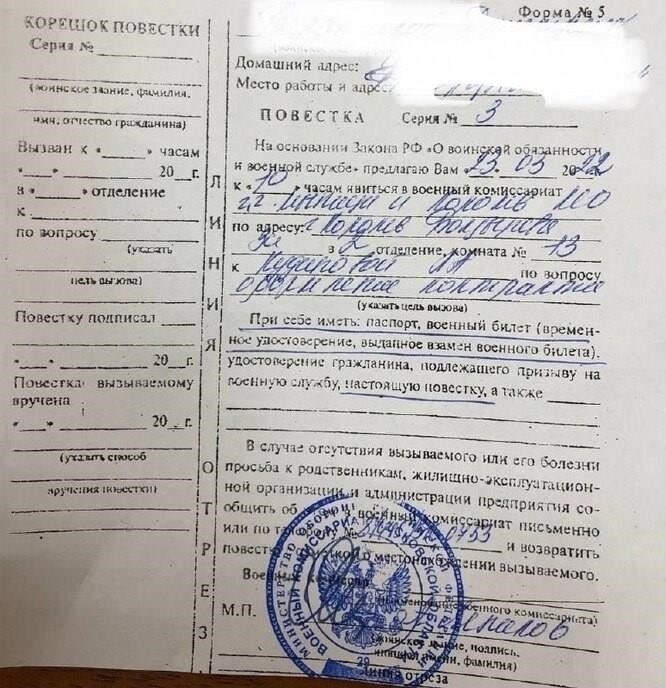 Форма № 5
КОРЕШОК ПОВЕСТКИ
Серия №
(воинское звание, фамилия,
имя, отчество гражданина)
Вызван к «___» часам
«___» 20__г.
в «___» отделение
к
по вопросу
(указать
цель вызова)
Повестку подписал
«___» 20__г.
Повестка вызываемому
вручена
«___» 20__г.
(указать способ
вручения повестки)
ЛИНИЯ ОТРЕЗ
Домашний адрес:
Место работы и адрес
ПОВЕСТКА Серия № 3
На основании Закона РФ «О воинской обязанности
и военной службе» предлагаю Вам «23.03 2022
к «10» часам явиться в военный комиссариат
и Королев МО
по адресу: г. Королев Болдырева
в 2 отделение, комната № 13
к по вопросу
оформление контракта
(указать цель вызова)
При себе иметь: паспорт, военный билет (времен-
ное удостоверение, выданное взамен военного билета),
удостоверение гражданина, подлежащего призыву на
военную службу, настоящую повестку, а также
В случае отсутствия вызываемого или его болезни
просьба к родственникам, жилищно-эксплуатацион-
ной организации и администрации предприятия со-
общить об в военный комиссариат письменно
или по 0753 и возвратить
повестку местонахождении вызываемого.
Военный комиссар
(наименование военного комиссариата)
М.П.
(воинское звание, подпись,
инициал имени, фамилия)
Линия отреза
ВОЕННЫЙ КОМИССАРИАТ